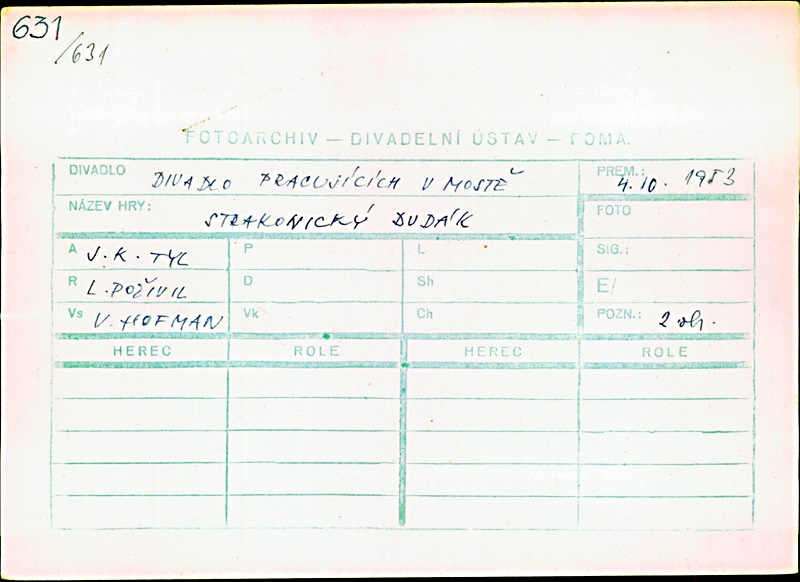 631
/631
FOTOARCHIV — DIVADELNÍ ÚSTAV — FOMA.
DIVADLO DIVADLO PRACUJÍCÍCH V MOSTĚ PREM.: 4. 10. 1953
NÁZEV HRY: STRAKONICKÝ DUDÁK FOTO
A J. K. TYL P L SIG.:
R L. POŽIVIL D Sh E/
Vs V. HOFMAN Vk Ch POZN.: 2 obr.
HEREC ROLE HEREC ROLE